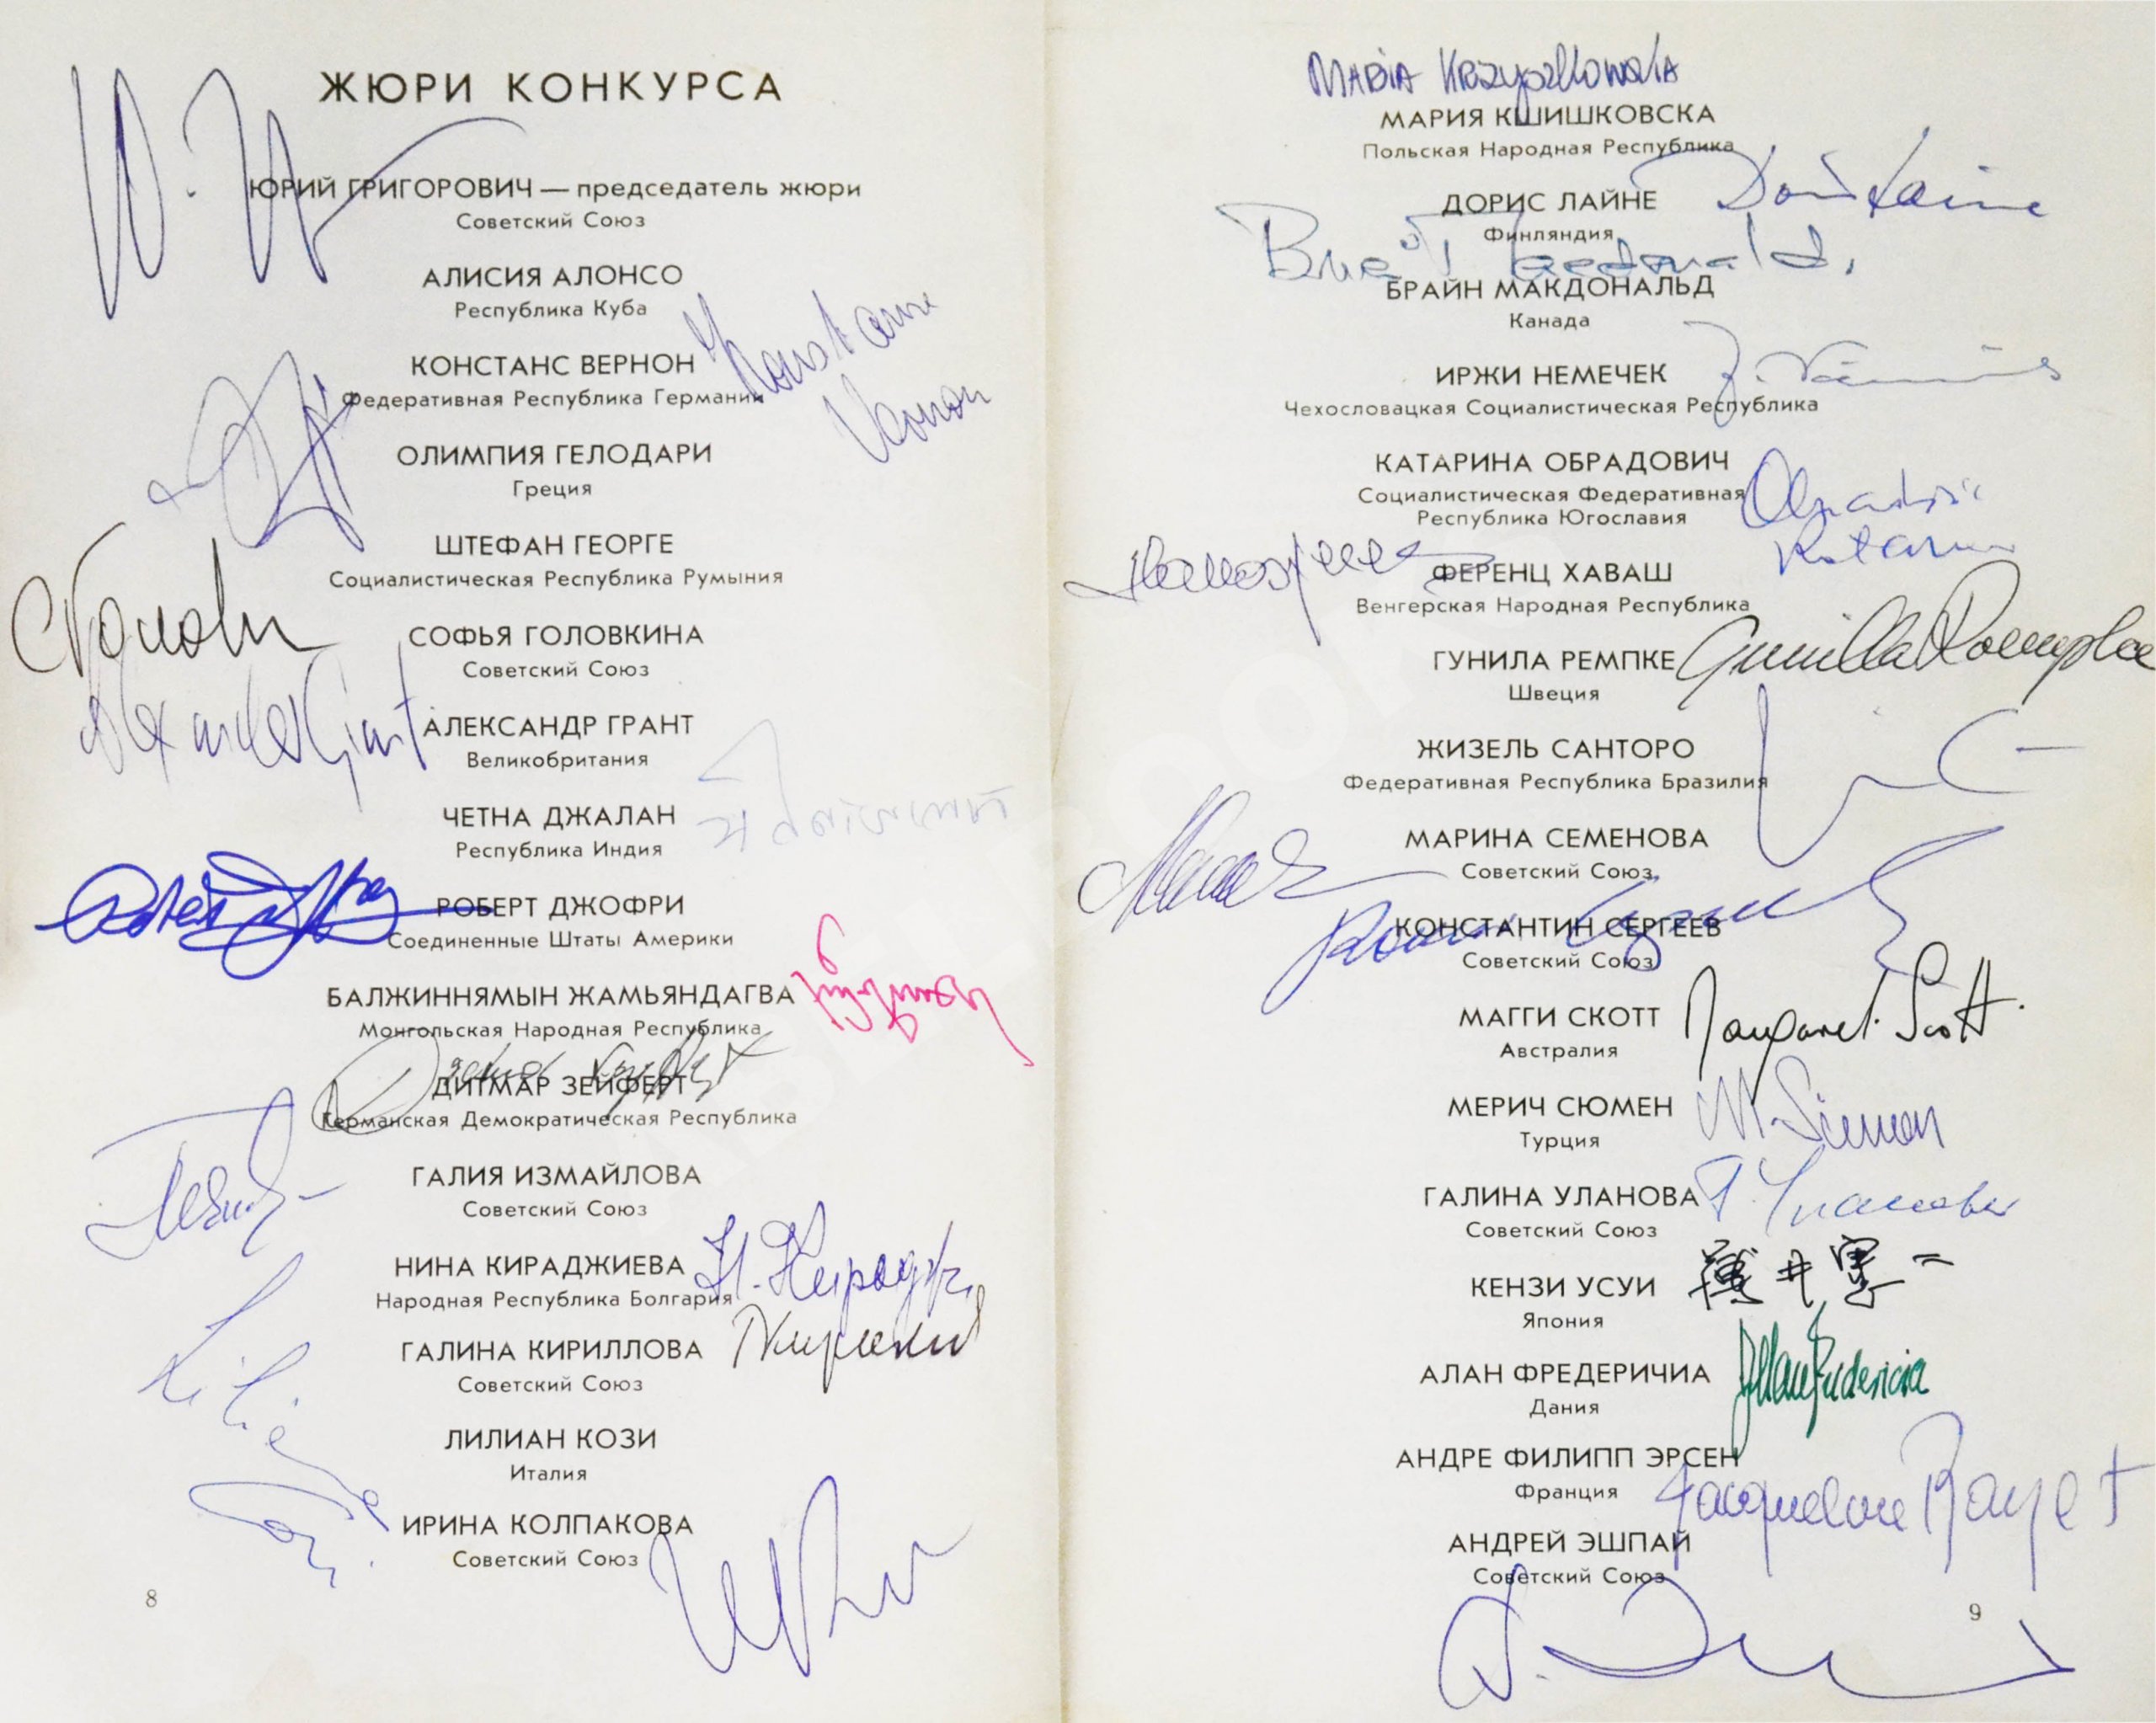 ЖЮРИ КОНКУРСА
ЮРИЙ ГРИГОРОВИЧ — председатель жюри
Советский Союз
АЛИСИЯ АЛОНСО
Республика Куба
Konstanze
Vernon
КОНСТАНС ВЕРНОН
Федеративная Республика Германии
ОЛИМПИЯ ГЕЛОДАРИ
Греция
ШТЕФАН ГЕОРГЕ
Социалистическая Республика Румыния
СОФЬЯ ГОЛОВКИНА
Советский Союз
Alexander Grant
АЛЕКСАНДР ГРАНТ
Великобритания
ЧЕТНА ДЖАЛАН
Республика Индия
РОБЕРТ ДЖОФРИ
Соединенные Штаты Америки
БАЛЖИННЯМЫН ЖАМЬЯНДАГВА
Монгольская Народная Республика
ДИТМАР ЗЕЙФЕРТ
Германская Демократическая Республика
ГАЛИЯ ИЗМАЙЛОВА
Советский Союз
НИНА КИРАДЖИЕВА
Народная Республика Болгария
ГАЛИНА КИРИЛЛОВА
Советский Союз
ЛИЛИАН КОЗИ
Италия
ИРИНА КОЛПАКОВА
Советский Союз
8
MARIA KRZYSZKOWSKA
МАРИЯ КШИШКОВСКА
Польская Народная Республика
ДОРИС ЛАЙНЕ Doris Laine
Финляндия
БРАЙН МАКДОНАЛЬД
Канада
ИРЖИ НЕМЕЧЕК
Чехословацкая Социалистическая Республика
КАТАРИНА ОБРАДОВИЧ
Социалистическая Федеративная
Республика Югославия
ФЕРЕНЦ ХАВАШ
Венгерская Народная Республика
ГУНИЛА РЕМПКЕ Gunilla Roempke
Швеция
ЖИЗЕЛЬ САНТОРО
Федеративная Республика Бразилия
МАРИНА СЕМЕНОВА
Советский Союз
КОНСТАНТИН СЕРГЕЕВ
Советский Союз
МАГГИ СКОТТ Margaret Scott
Австралия
МЕРИЧ СЮМЕН M. Sümen
Турция
ГАЛИНА УЛАНОВА Г. Уланова
Советский Союз
КЕНЗИ УСУИ 薄井憲二
Япония
АЛАН ФРЕДЕРИЧИА Allan Fridericia
Дания
АНДРЕ ФИЛИПП ЭРСЕН
Франция Jacqueline Rayet
АНДРЕЙ ЭШПАЙ
Советский Союз
9